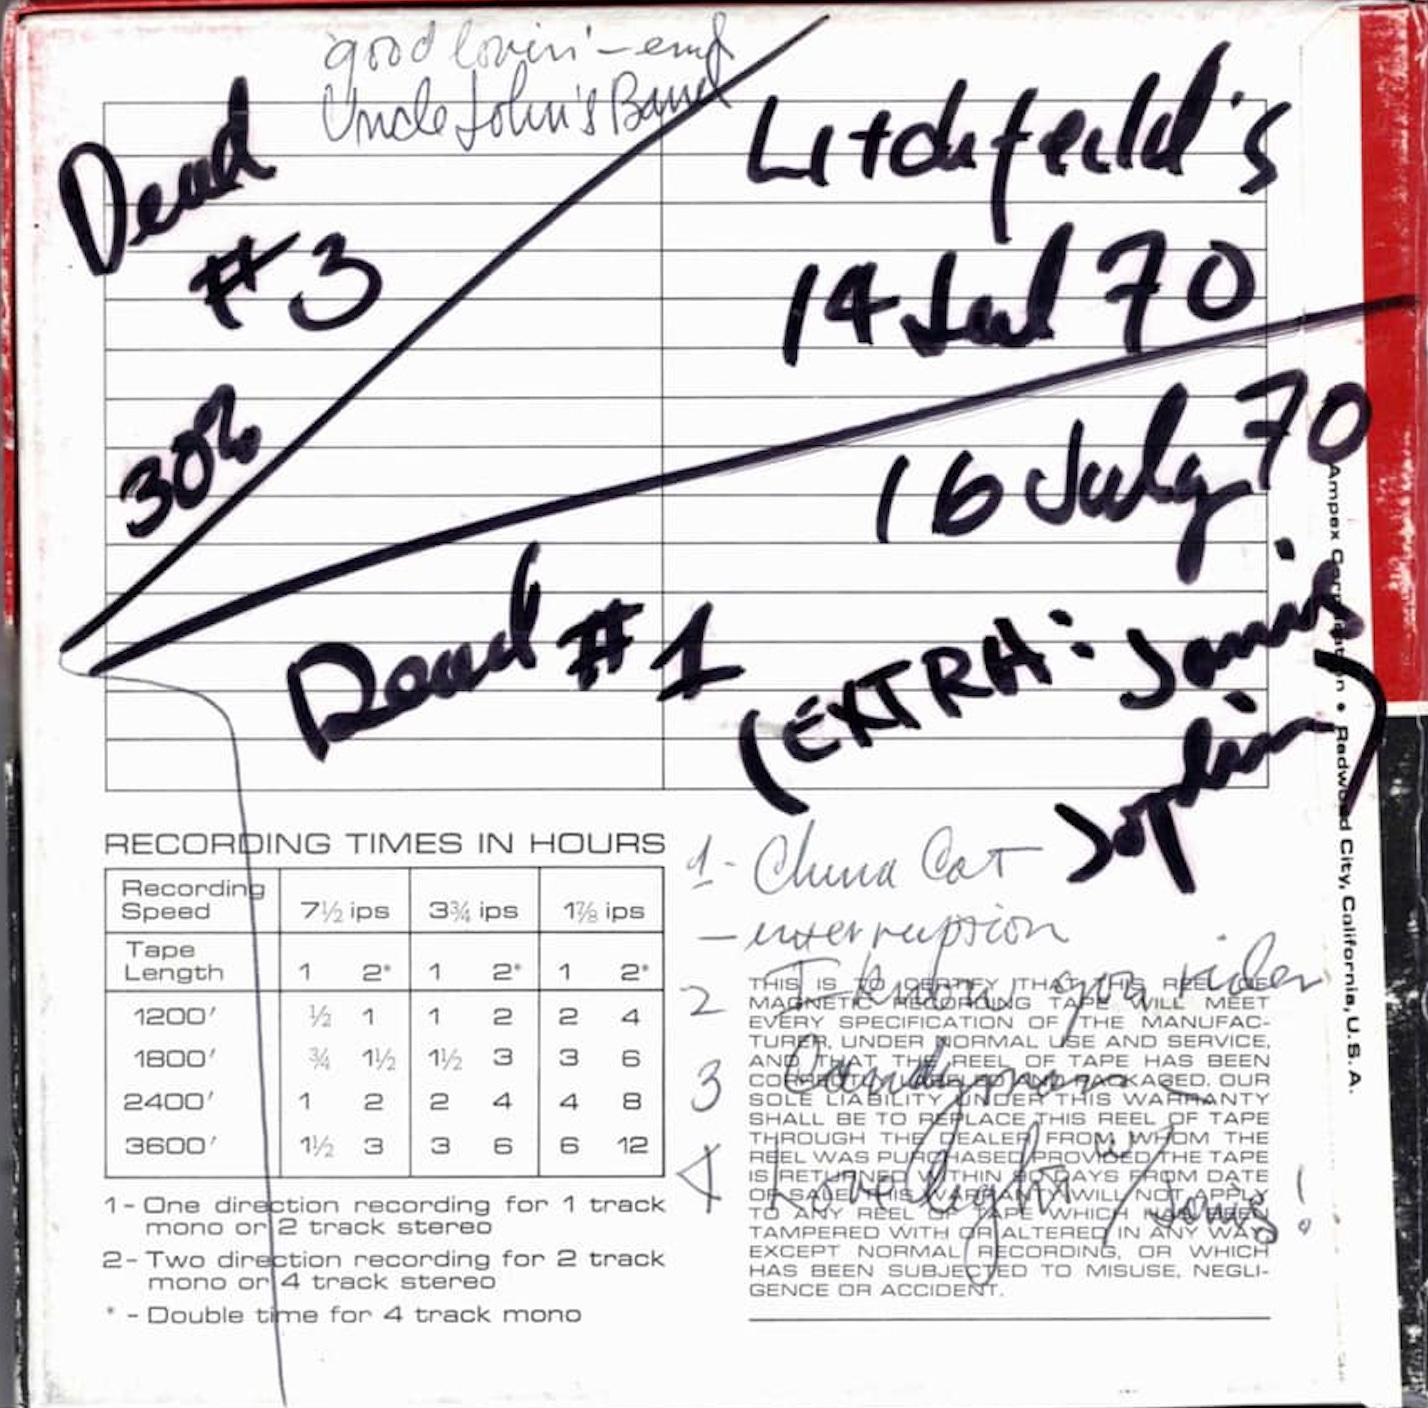 good lovin' - end
Uncle John's Band
Dead
#3
30%
Litchfeild's
14 Jul 70
16 July 70
Dead #1
(EXTRA: Janis
Joplin)
Ampex Corporation • Redwood City, California, U.S.A.
RECORDING TIMES IN HOURS
Recording Speed 7½ ips 3¾ ips 1⅞ ips
Tape Length 1 2* 1 2* 1 2*
1200' ½ 1 1 2 2 4
1800' ¾ 1½ 1½ 3 3 6
2400' 1 2 2 4 4 8
3600' 1½ 3 3 6 6 12
1- One direction recording for 1 track
mono or 2 track stereo
2- Two direction recording for 2 track
mono or 4 track stereo
* - Double time for 4 track mono
1- China Cat
- interruption
2 I know you rider
3 Candyman
4 Lovelight w/ Janis!
THIS IS TO CERTIFY THAT THIS REEL OF
MAGNETIC RECORDING TAPE WILL MEET
EVERY SPECIFICATION OF THE MANUFAC-
TURER, UNDER NORMAL USE AND SERVICE,
AND THAT THE REEL OF TAPE HAS BEEN
CORRECTLY LABELED AND PACKAGED. OUR
SOLE LIABILITY UNDER THIS WARRANTY
SHALL BE TO REPLACE THIS REEL OF TAPE
THROUGH THE DEALER FROM WHOM THE
REEL WAS PURCHASED PROVIDED THE TAPE
IS RETURNED WITHIN 90 DAYS FROM DATE
OF SALE. THIS WARRANTY WILL NOT APPLY
TO ANY REEL OF TAPE WHICH HAS BEEN
TAMPERED WITH OR ALTERED IN ANY WAY
EXCEPT NORMAL RECORDING, OR WHICH
HAS BEEN SUBJECTED TO MISUSE, NEGLI-
GENCE OR ACCIDENT.